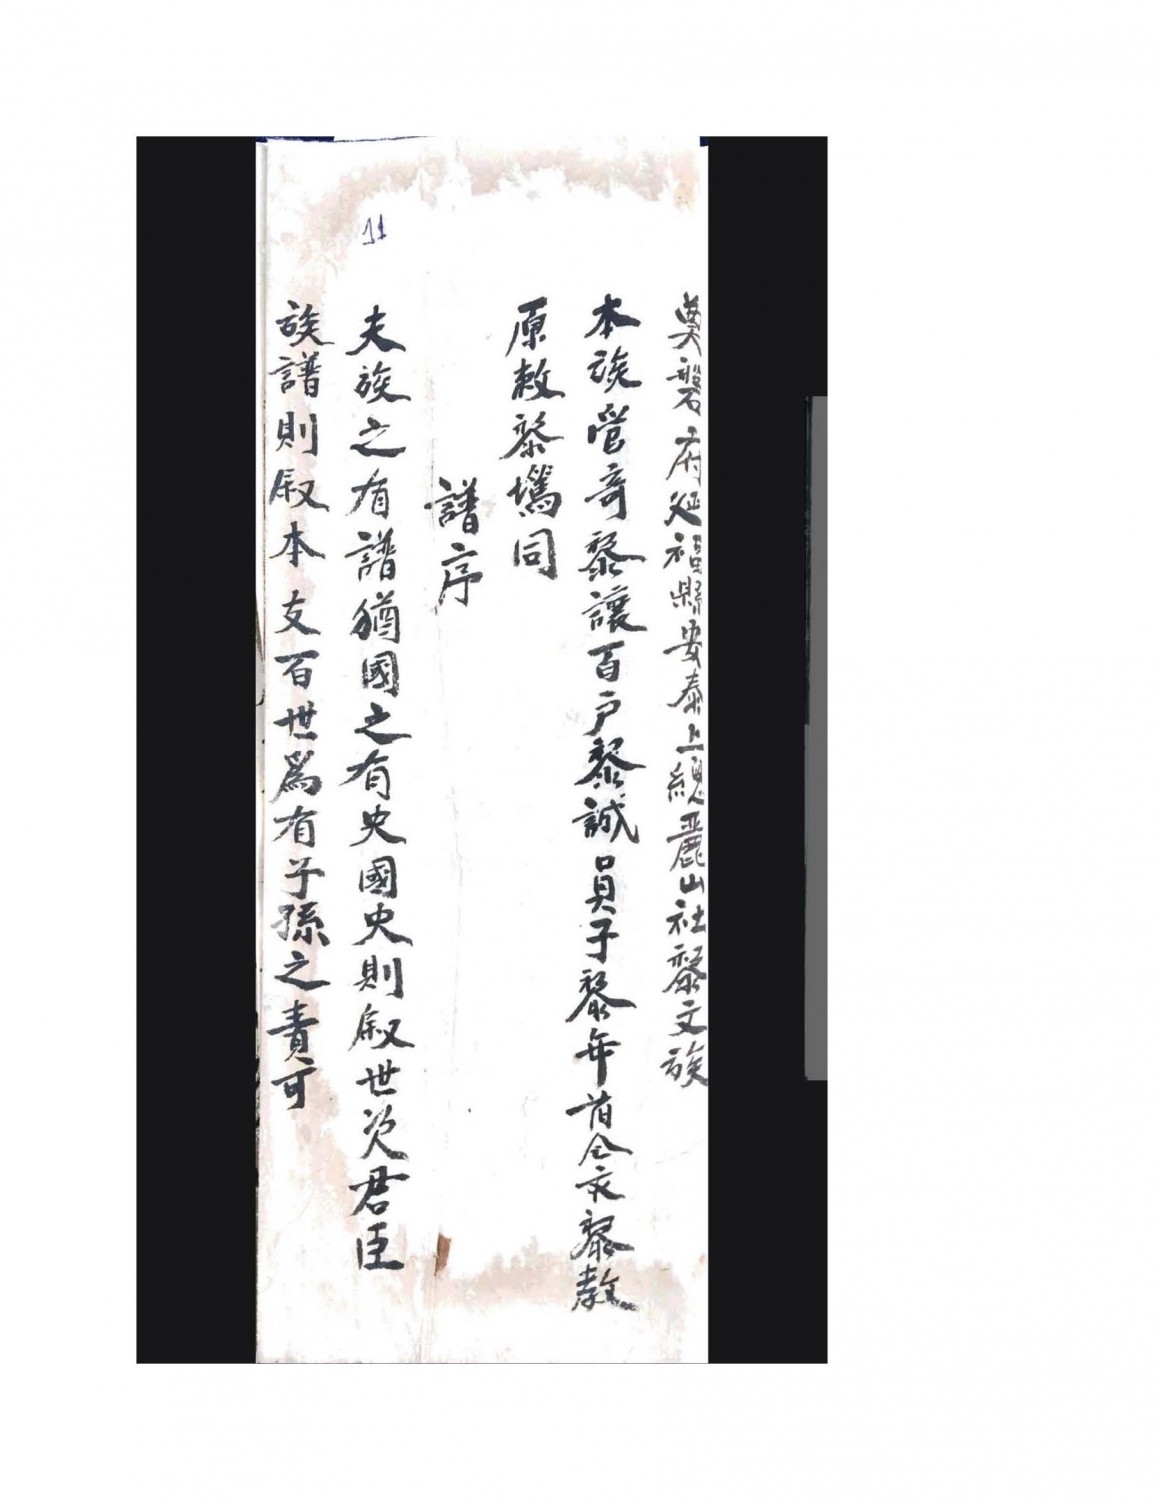 11
奠磐府延福縣安泰上總麗山社黎文族
本族管奇黎讓百戶黎誠員子黎年首合文黎教
原敕黎同
譜序
夫族之有譜猶國之有史國史則叙世次君臣
族譜則叙本支百世爲有子孫之責可